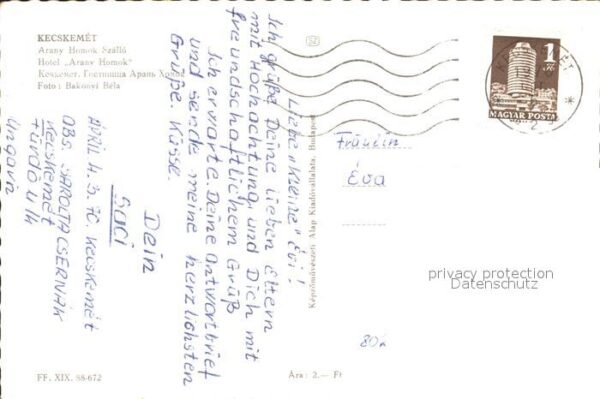 KECSKEMÉT
Arany Homok Szálló
Hotel „Arany Homok"
Кечкемет. Гостиница Арань Хомок
Foto: Bakonyi Béla
Liebe „Kleine" Évi!
Ich grüße Deine lieben Eltern
mit Hochachtung, und Dich mit
freundschaftlichem Gruß
Ich erwarte Deine Antwortbrief
und sende meine herzlichsten
Grüße, Küsse.
Dein
Saci
4. 3. 70. Kecskemét
ABS. SAROLTA CSERNÁK
Kecskemét
Ungarn
Képzőművészeti Alap Kiadóvállalata, Budapest
SZ
1
Ft
MAGYAR POSTA
Fräulein
Éva
privacy protection
Datenschutz
80a
FF. XIX. 88-672
Ára: 2.— Ft